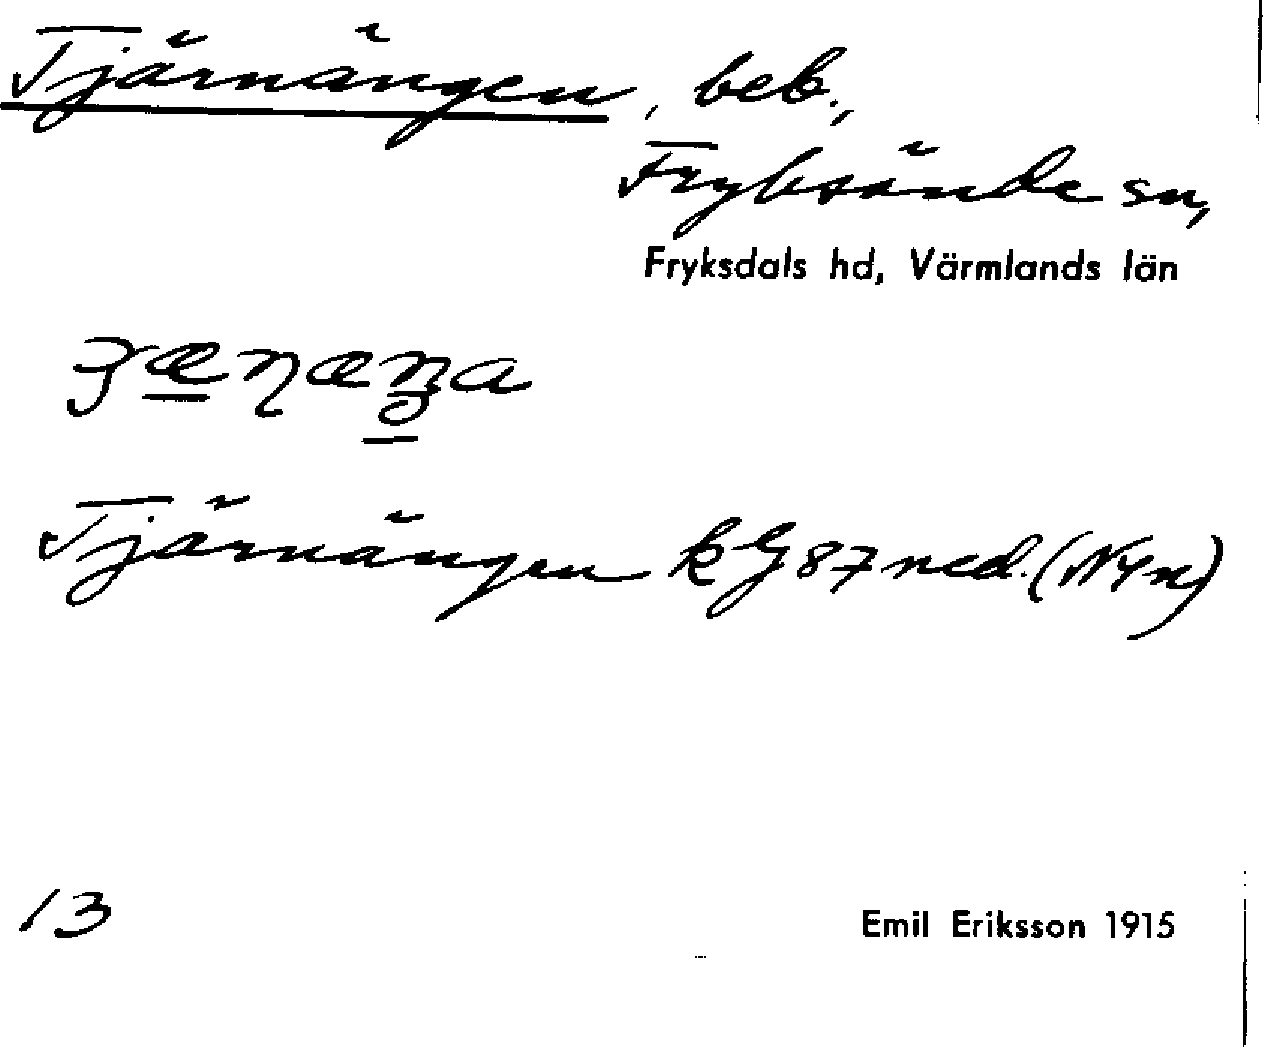 Tjärnängen, beb.,
Fryksände sn,
Fryksdals hd, Värmlands län
Tjärnängen kG87ned. (NYn)
13
Emil Eriksson 1915